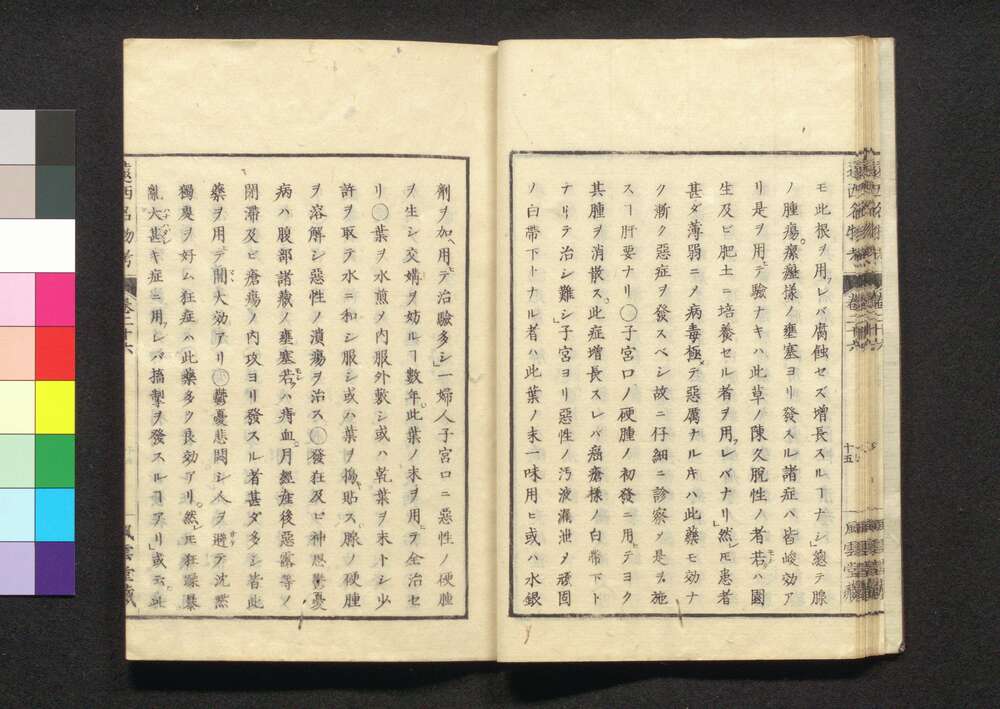 モ此根ヲ用レバ腐蝕セズ増長スルヿナシ」惣テ腺
ノ腫瘍瘰癧樣ノ壅塞ヨリ發スル諸症ハ皆峻効ア
リ是ヲ用テ驗ナキハ此草ノ陳久脫性ノ者若ハ園
生及ビ肥土ニ培養セル者ヲ用レバナリ」然モ患者
甚ダ薄弱ニ〆病毒極テ惡厲ナルキハ此藥モ効ナ
ク漸ク惡症ヲ發スベシ故ニ仔細ニ診察〆是ヲ施
スヿ肝要ナリ◯子宮口ノ硬腫ノ初發ニ用テヨク
其腫ヲ消散ス此症增長スレバ癌瘡樣ノ白帶下ト
ナリテ治シ難シ」子宮ヨリ惡性ノ汚液漏泄〆頑固
ノ白帶下トナル者ハ此葉ノ末一味用ヒ或ハ水銀
劑ヲ加用テ治驗多シ」一婦人子宮口ニ惡性ノ硬腫
ヲ生シ交媾ヲ妨ルヿ數年此葉ノ末ヲ用テ全治セ
リ◯葉ヲ水煎〆內服外敷シ或ハ乾葉ヲ末トシ少
許ヲ取テ水ニ和シ服シ或ハ葉ヲ搗貼ス腺ノ硬腫
ヲ溶解シ惡性ノ潰瘍ヲ治ス◯發狂及ビ神思鬱憂
病ハ腹部諸藏ノ壅塞若ハ痔血月經產後惡露等ノ
閉滯及ビ瘡瘍ノ內攻ヨリ發スル者甚ダ多シ皆此
藥ヲ用テ間大効アリ◯鬱憂悲悶シ人ヲ避テ沈默
獨處ヲ好ム狂症ハ此藥多ク良効アリ然モ狂躁暴
亂大甚キ症ニ用レバ搐掣ヲ發スルヿアリ」或云
遠西名物考
卷二十六
十五
風雲堂藏